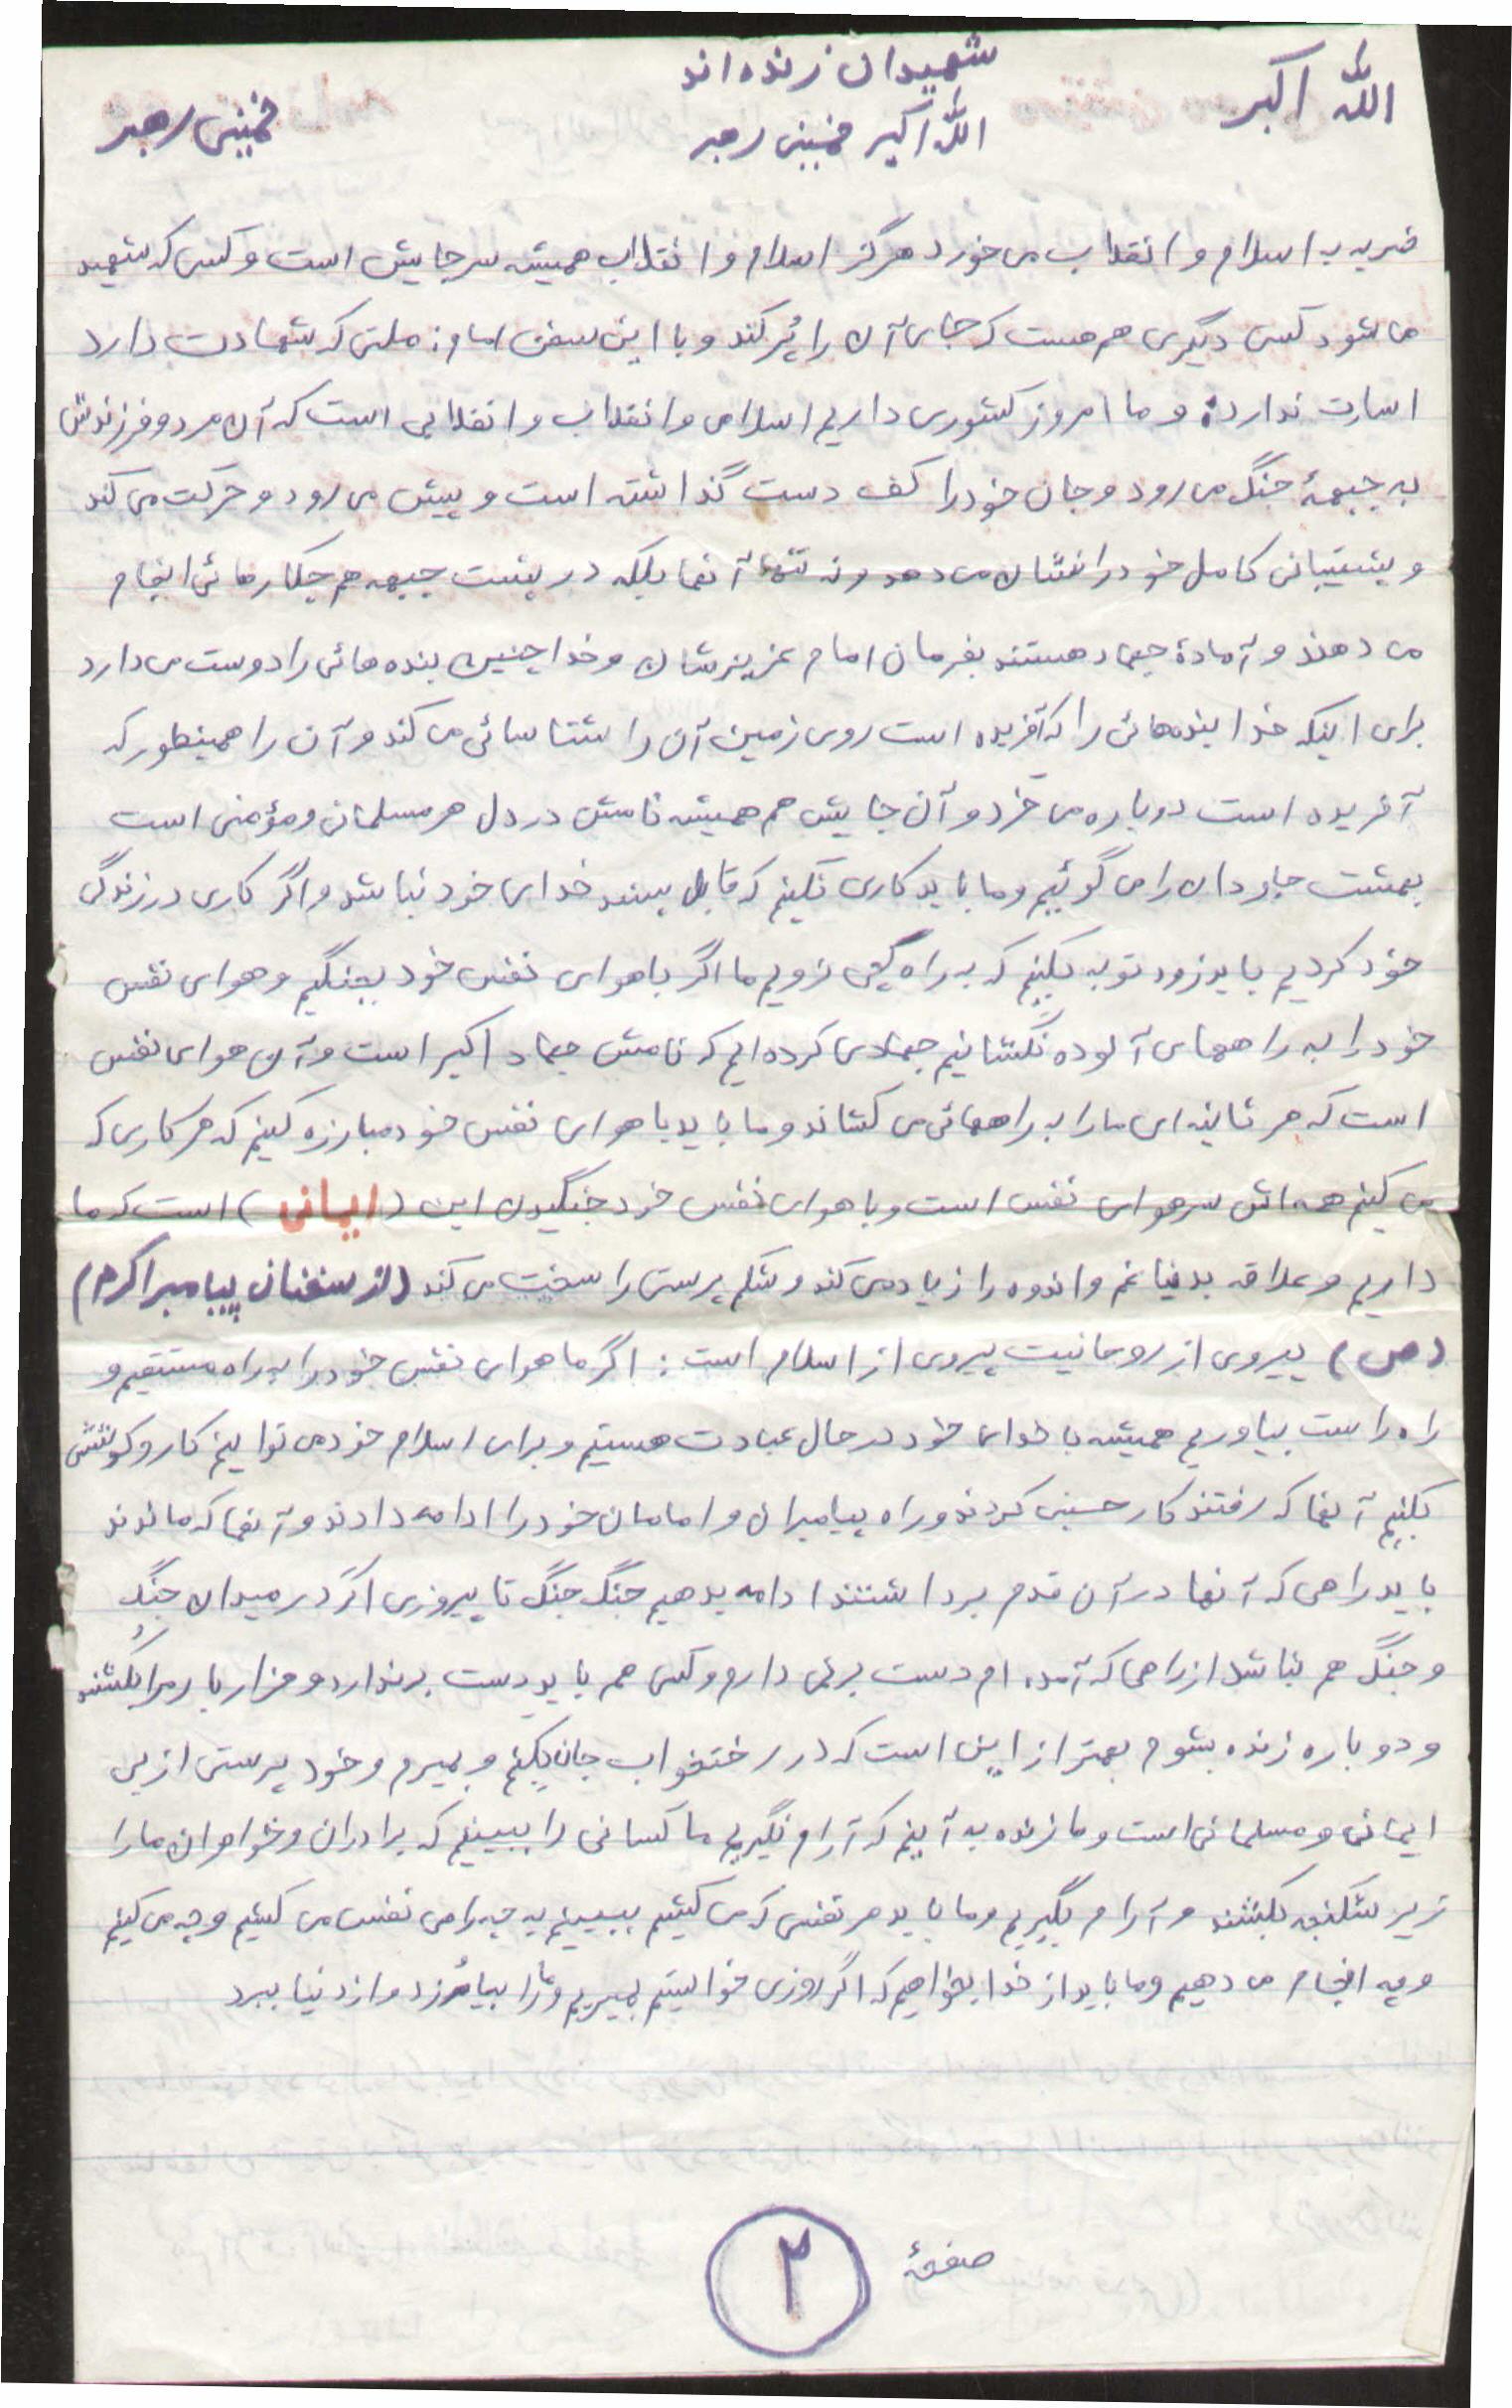 شهیدان زنده‌اند
الله اکبر
الله اکبر خمینی رهبر
خمینی رهبر
ضربه به اسلام و انقلاب می خورد هرگز اسلام و انقلاب همیشه سر جایش است و کسی که شهید
می شود کسی دیگری هم هست که جای آن را پُر کند و با این سخن امام: ملتی که شهادت دارد
اسارت ندارد: و ما امروز کشوری داریم اسلامی و انقلاب و انقلابی است که آن مرد و فرزندش
به جبههٔ جنگ می رود و جان خود را کف دست گذاشته است و پیش می رود و حرکت می کند
و پشتیبانی کامل خود را نشان می دهد و نه تنها آنها بلکه در پشت جبهه هم چکارهائی انجام
می دهند و آمادهٔ جهاد هستند بفرمان امام عزیزشان و خدا چنین بنده هائی را دوست می دارد
برای اینکه خدا بنده‌هائی را که آفریده است روی زمین آن را شناسائی می کند و آن را همینطور که
آفریده است دوباره می خرد و آن جایش هم همیشه نامش در دل هر مسلمانی و مؤمنی است
بهشت جاودان را می گوئیم و ما باید کاری نکنیم که قابل پسند خدای خود نباشد و اگر کاری در زندگی
خود کردیم باید زود توبه بکنیم که به راه کجی نرویم ما اگر با هوای نفس خود بجنگیم و هوای نفس
خود را به راههای آلوده نکشانیم جهادی کرده ایم که نامش جهاد اکبر است و آن هوای نفس
است که هر ثانیه ای ما را به راههائی می کشاند و ما باید با هوای نفس خود مبارزه کنیم که هر کاری که
می کنیم همه اش سر هوای نفس است و با هوای نفس خود جنگیدن این (ایمانی) است که ما
داریم و علاقه بدنیا غم و اندوه را زیاد می کند و شکم پرستی را سخت می کند (از سخنان پیامبر اکرم)
(ص) پیروی از روحانیت پیروی از اسلام است: اگر ما هوای نفس خود را به راه مستقیم و
راه راست بیاوریم همیشه با خدای خود در حال عبادت هستیم و برای اسلام خود می توانیم کار و کوشش
بکنیم آنها که رفتند کار حسینی کردند و راه پیامبران و امامان خود را ادامه دادند و آنها که ماندند
باید راهی که آنها در آن قدم برداشتند ادامه بدهیم جنگ جنگ تا پیروزی اگر در میدان جنگ
و جنگ هم نباشد از راهی که آمده ام دست برنمی دارم و کسی هم باید دست برندارد و هزار بار مرا بکُشند
و دوباره زنده بشوم بهتر از این است که در رختخواب جان بکنم و بمیرم و خود پرستی از بی
ایمانی و مسلمانی است و ما زنده به آنیم که آرام نگیریم ما کسانی را ببینیم که برادران و خواهران ما را
زیر شکنجه بکشند و آرام بگیریم و ما باید هر نفسی که می کشیم ببینیم به چه راهی نفس می کشیم و چه می کنیم
و چه انجام می دهیم و ما باید از خدا بخواهیم که اگر روزی خواستیم بمیریم ما را بیامُرزد و از دنیا ببرد
صفحهٔ ۲